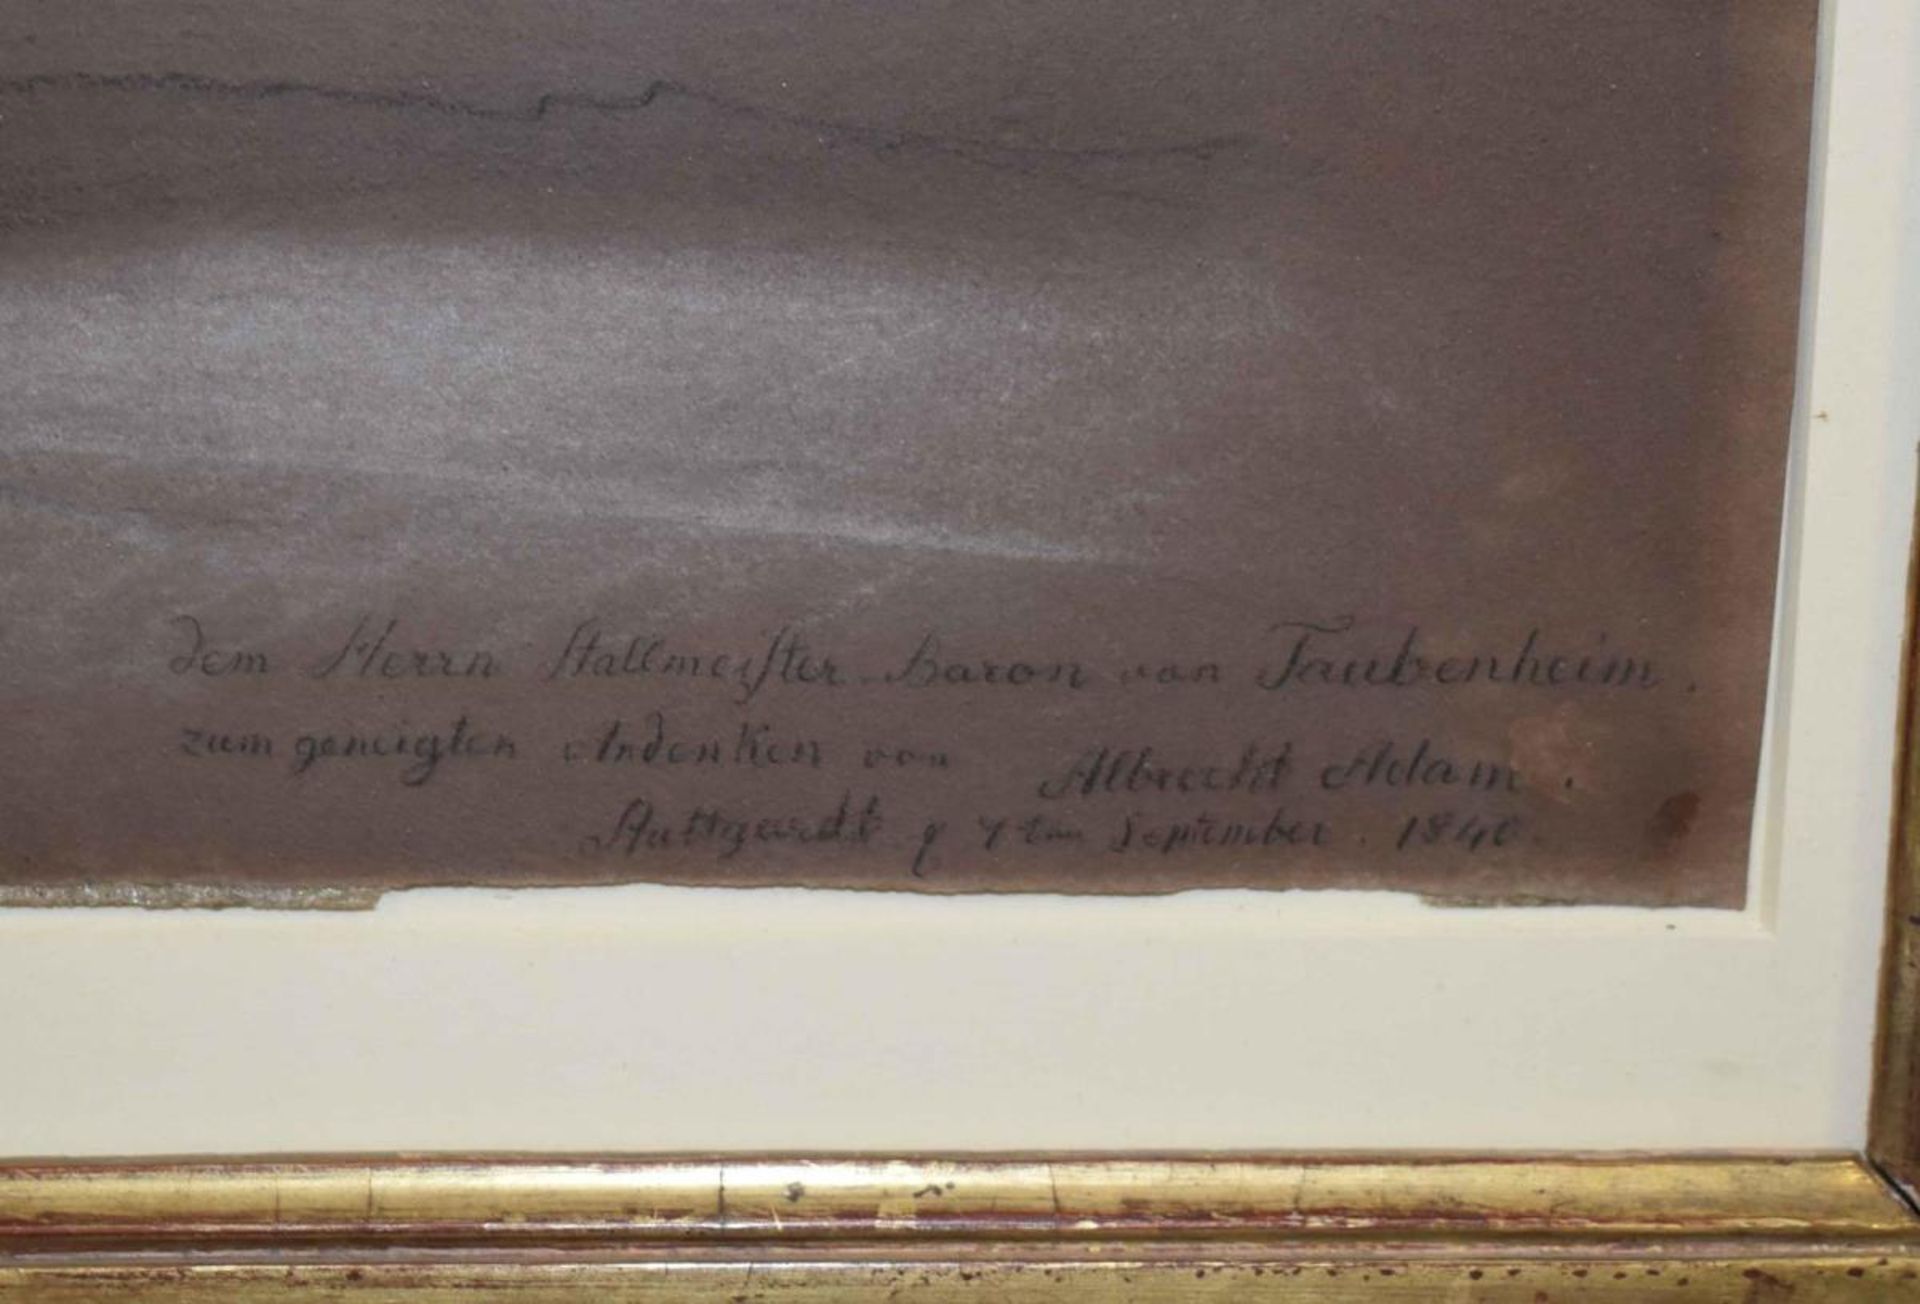 dem Herrn Stallmeister Baron von Taubenheim.
zum geneigten Andenken von Albrecht Adam.
Stuttgardt 7ten September. 1840.